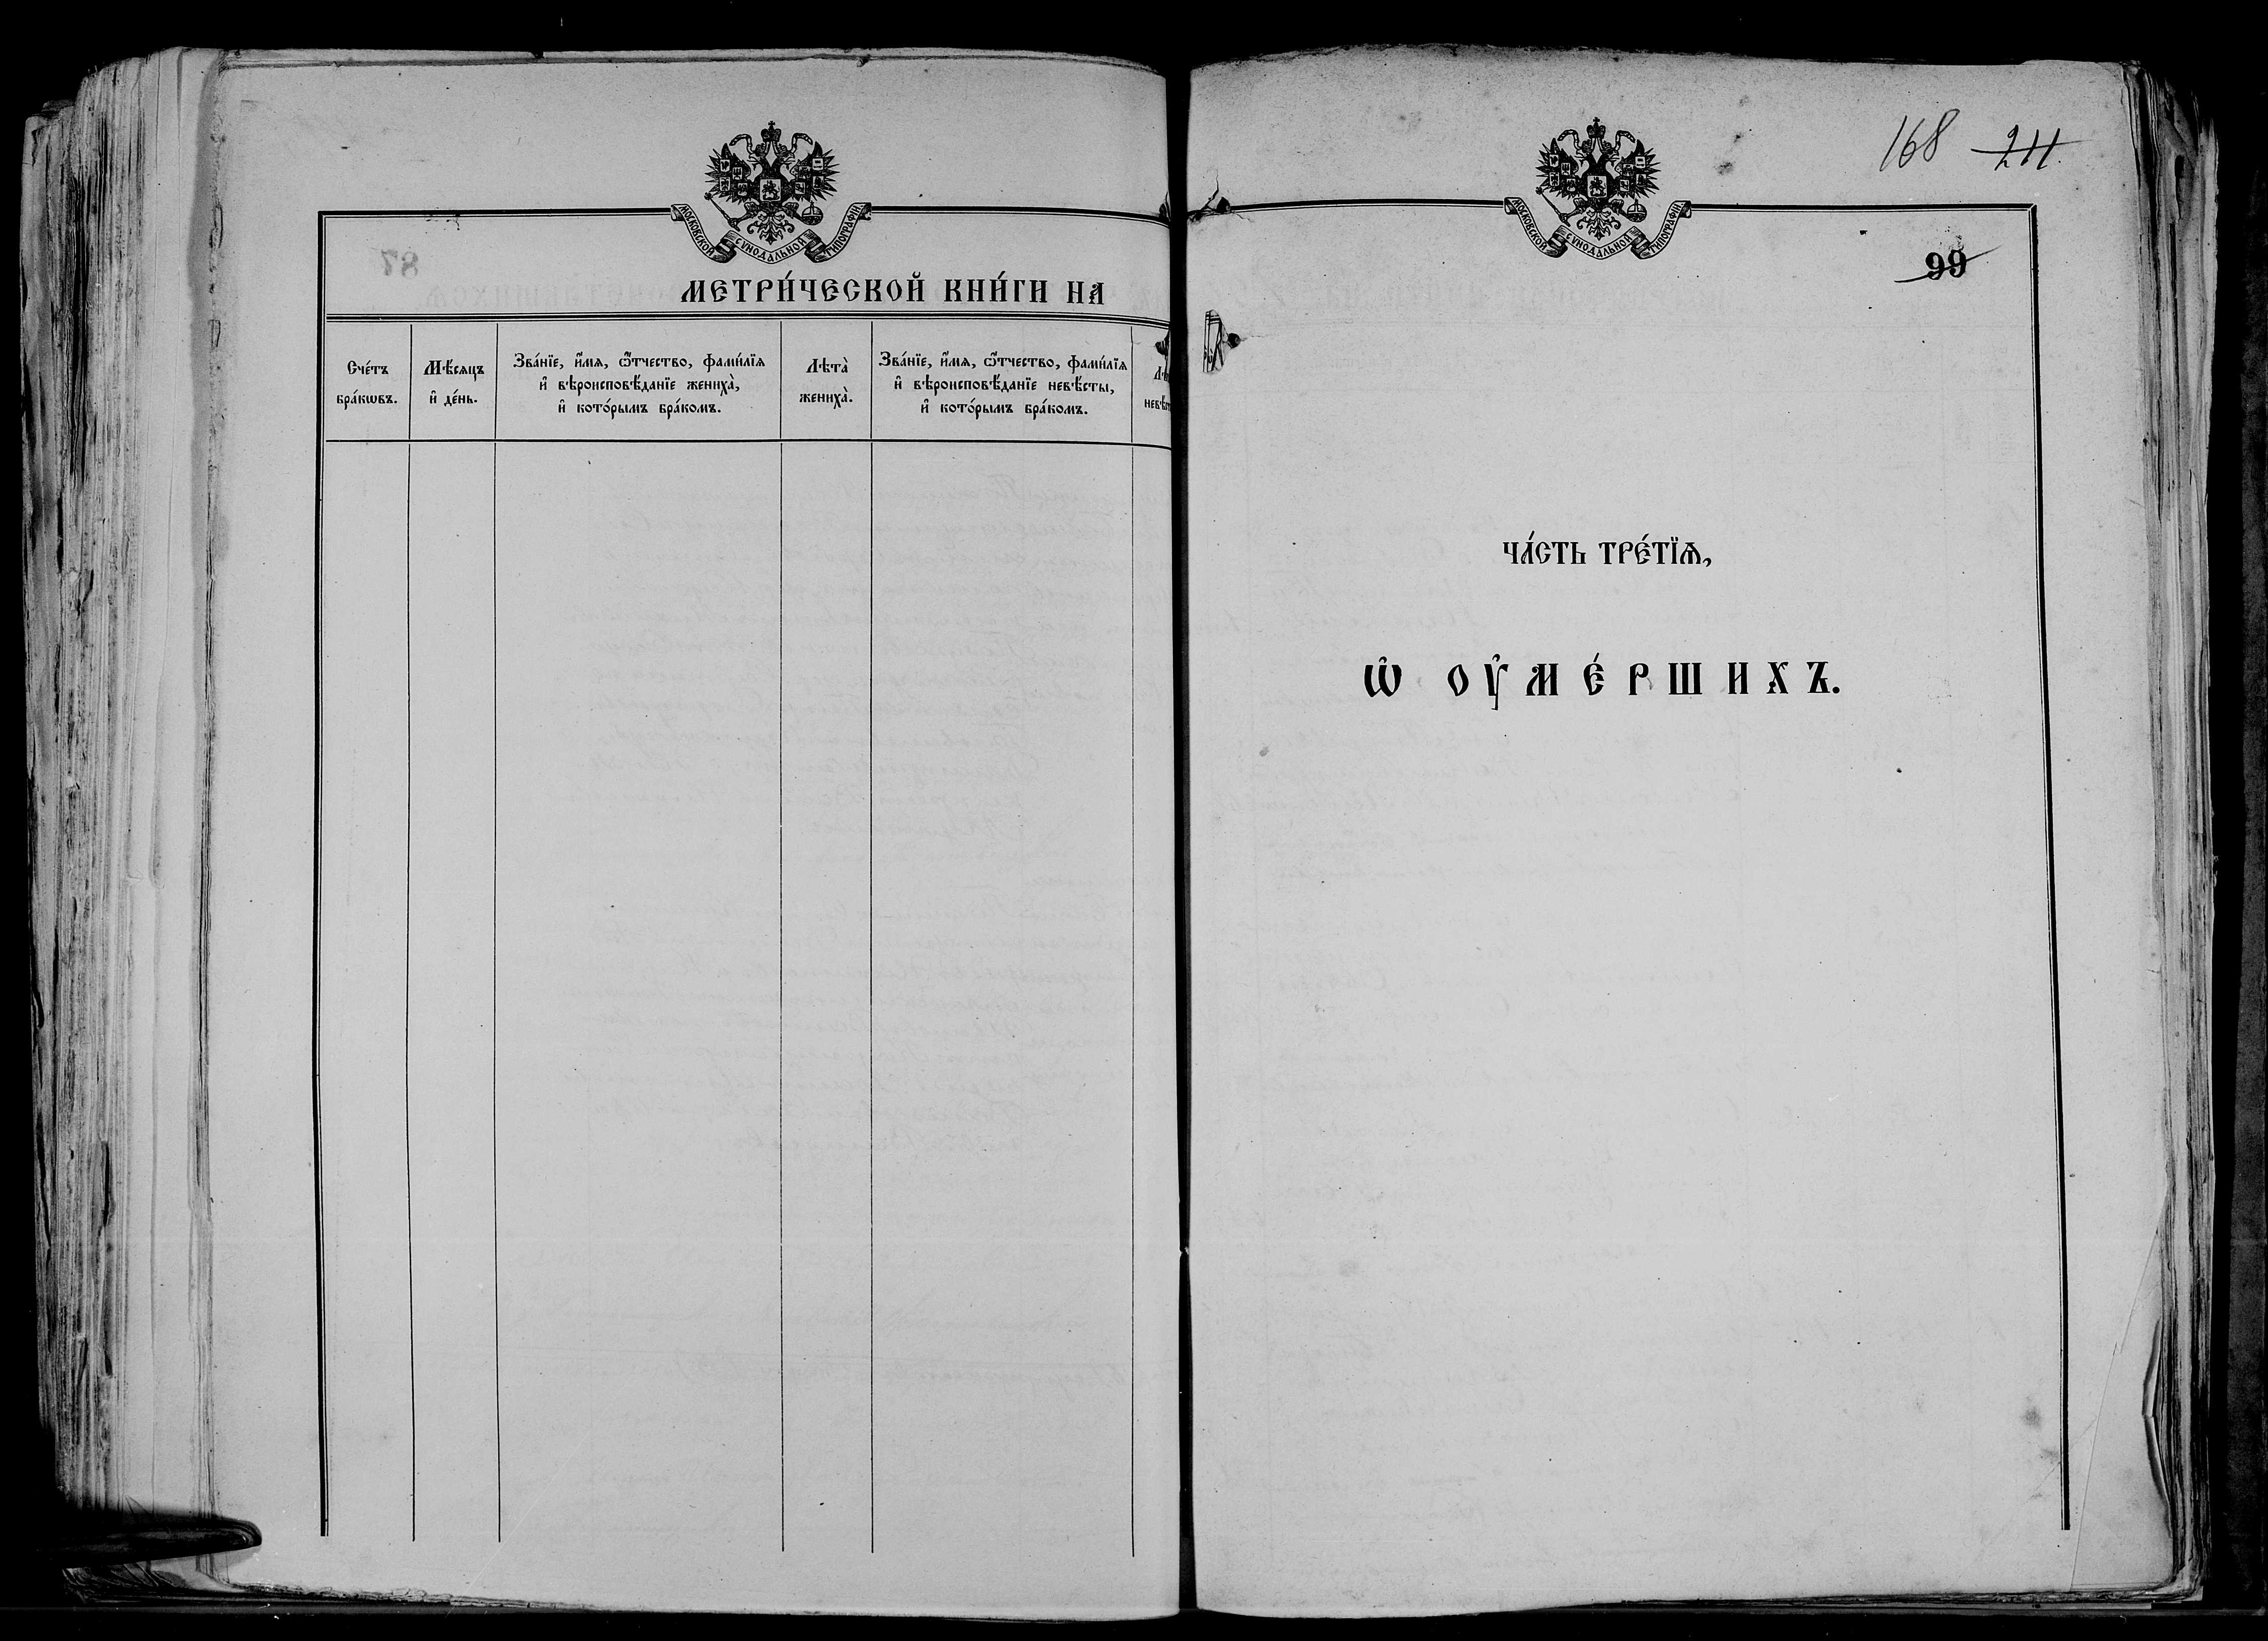 МОСКОВСКОЙ СѴНОДАЛЬНОЙ ТИПОГРАФІИ.
87
МЕТРИ́ЧЕСКОЙ КНИ́ГИ НА
Сче́тъ
бра́кѡвъ.
Мѣ́сяцъ
и҆ де́нь.
Зва́нїе, и҆́мя, ѻ҆́тчество, фами́лїя
и҆ вѣроисповѣ́данїе жениха̀,
и҆ кото́рымъ бра́комъ.
Лѣта̀
жениха̀.
Зва́нїе, и҆́мя, ѻ҆́тчество, фами́лїя
и҆ вѣроисповѣ́данїе невѣ́сты,
и҆ кото́рымъ бра́комъ.
168 211.
МОСКОВСКОЙ СѴНОДАЛЬНОЙ ТИПОГРАФІИ.
99
ЧА́СТЬ ТРЕ́ТЇѦ,
Ѡ҆ ОУ҆МЕ́РШИХЪ.